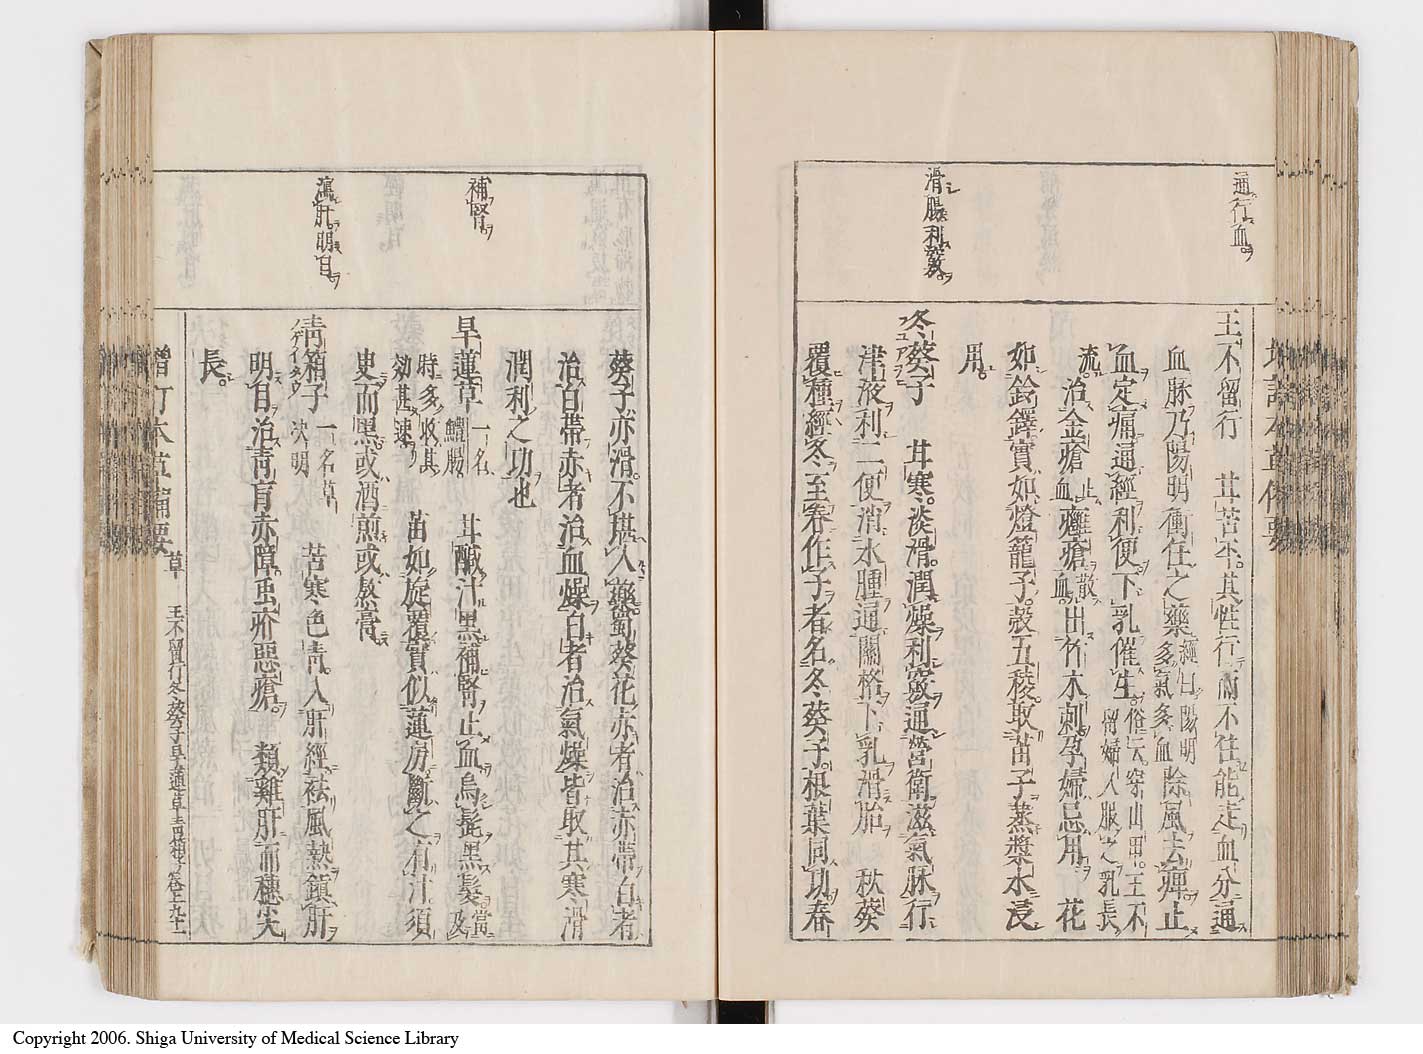 通行血
王不留行　甘苦平其性行而不住能走血分通
血脉乃陽明衝任之藥經曰陽明多氣多血除風去痺止
血定痛通經利便下乳催生俗云穿山甲王不留婦人服之乳長
流治金瘡止血癰瘡散血出竹木刺孕婦忌用　花
如鈴鐸實如燈籠子殼五稜取苗子蒸漿水浸
用
滑腸利竅
冬葵子　甘寒淡滑潤燥利竅通營衛滋氣脉行
津液利二便消水腫通關格下乳滑胎　秋葵
覆種經冬至春作子者名冬葵子根葉同功春
葵子亦滑不堪入藥蜀葵花赤者治赤帶白者
治白帶赤者治血燥白者治氣燥皆取其寒滑
潤利之功也
補腎
旱蓮草一名鱧腸　甘鹹汁黑補腎止血烏髭黑髮當及
時多收其効甚速　苗如旋覆實似蓮房斷之有汁須
臾而黑或酒煎或熬膏
瀉肝明目
青箱子一名草決明　苦寒色青入肝經祛風熱鎮肝
明目治青盲赤障虫疥惡瘡　類雞肝而穗尖
長
增訂本草備要　草　王不留行冬葵子旱蓮草青箱子
Copyright 2006. Shiga University of Medical Science Library